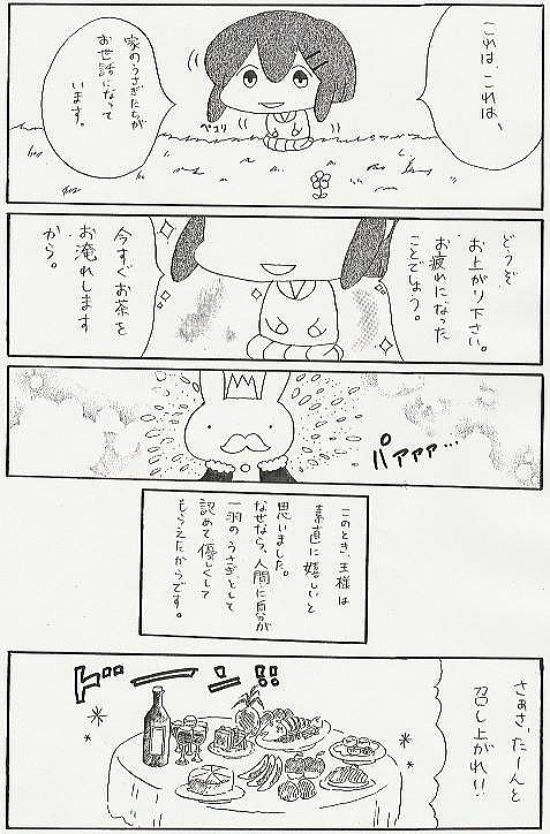 これは、これは、
家のうさぎたちが
お世話になって
います。
ペコリ
どうぞ
お上がり下さい。
お疲れになった
ことでしょう。
今すぐお茶を
お淹れします
から。
パアァァ…
このとき、王様は
素直に嬉しいと
思いました。
なぜなら、人間に自分が
一羽のうさぎとして
認めて優しくして
もらえたからです。
さぁさ、たーんと
召し上がれ!!
ドーン!!